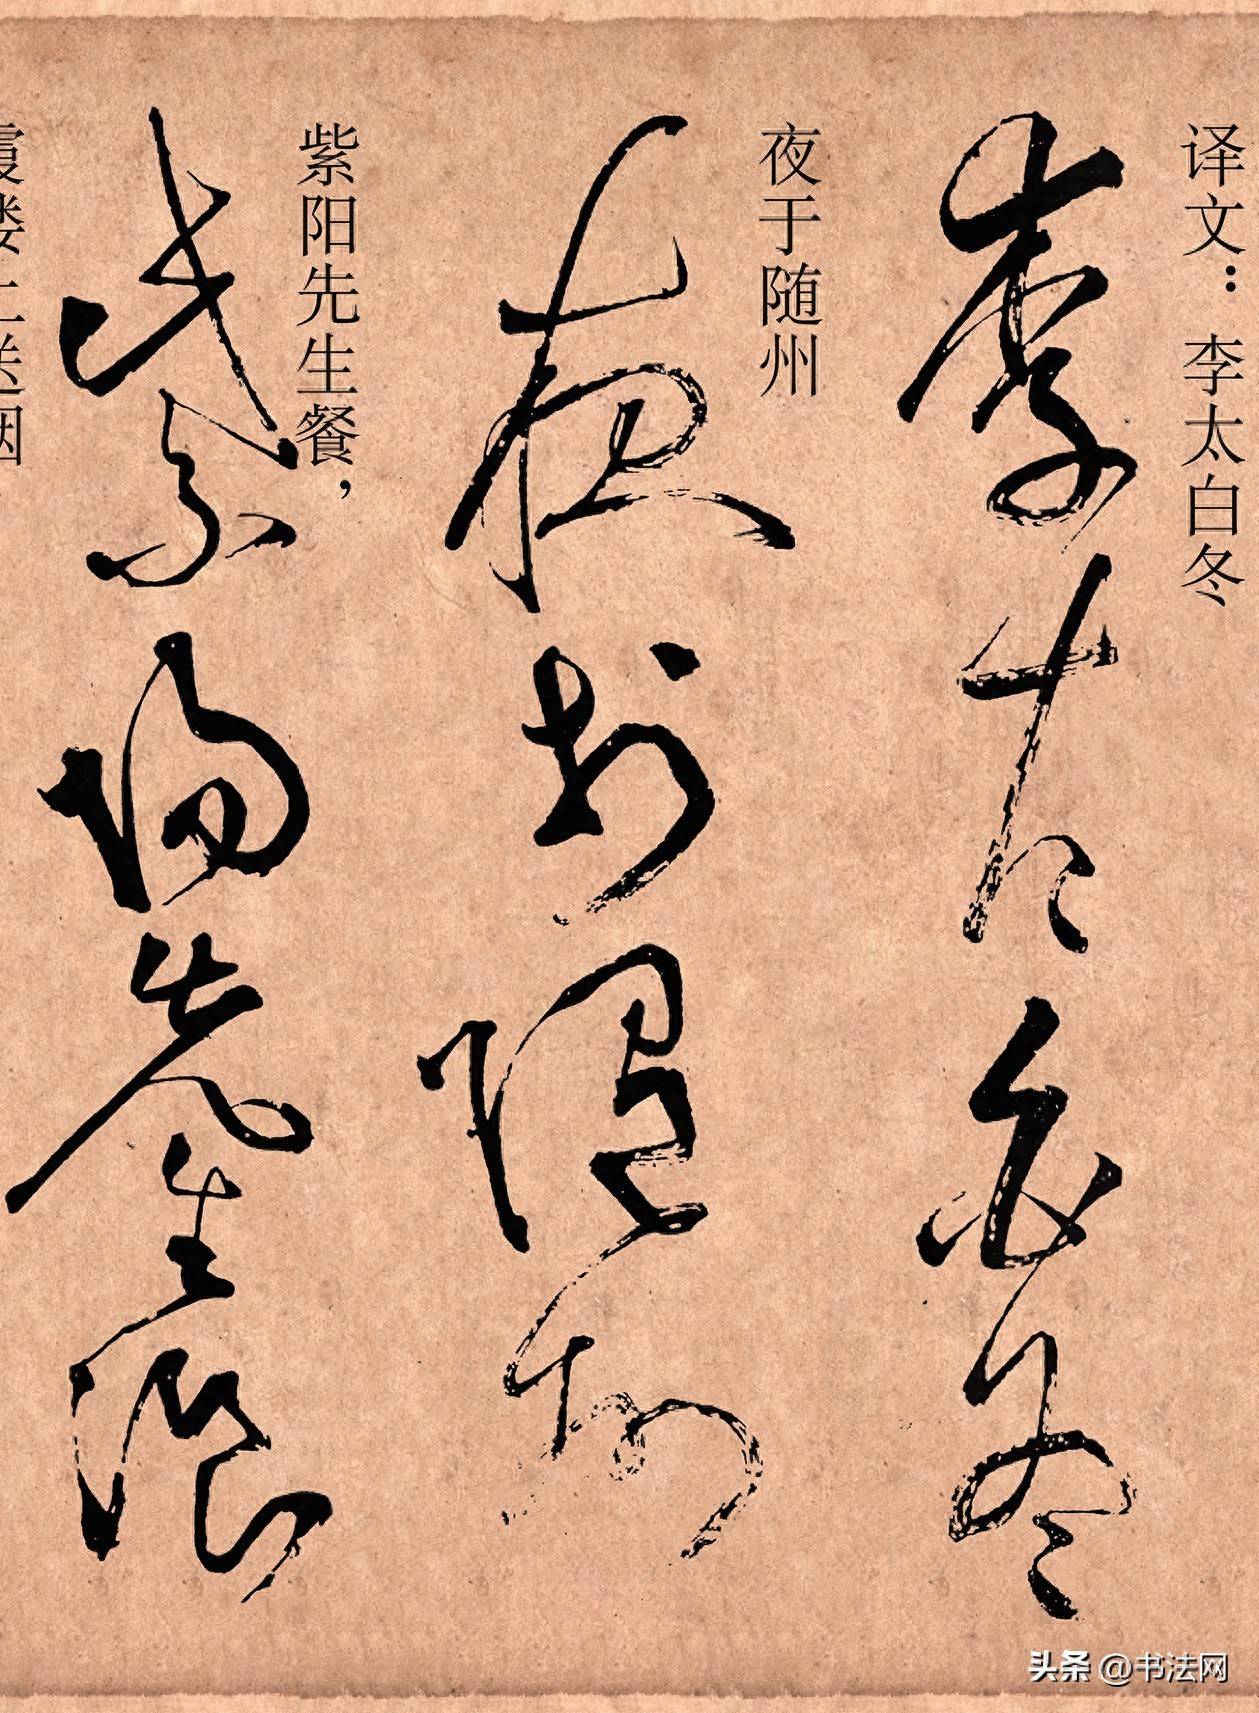 译文：李太白冬
李太白冬
夜于随州
夜于随州
紫阳先生餐，
紫阳先生餐
霞楼上送烟
头条 @书法网